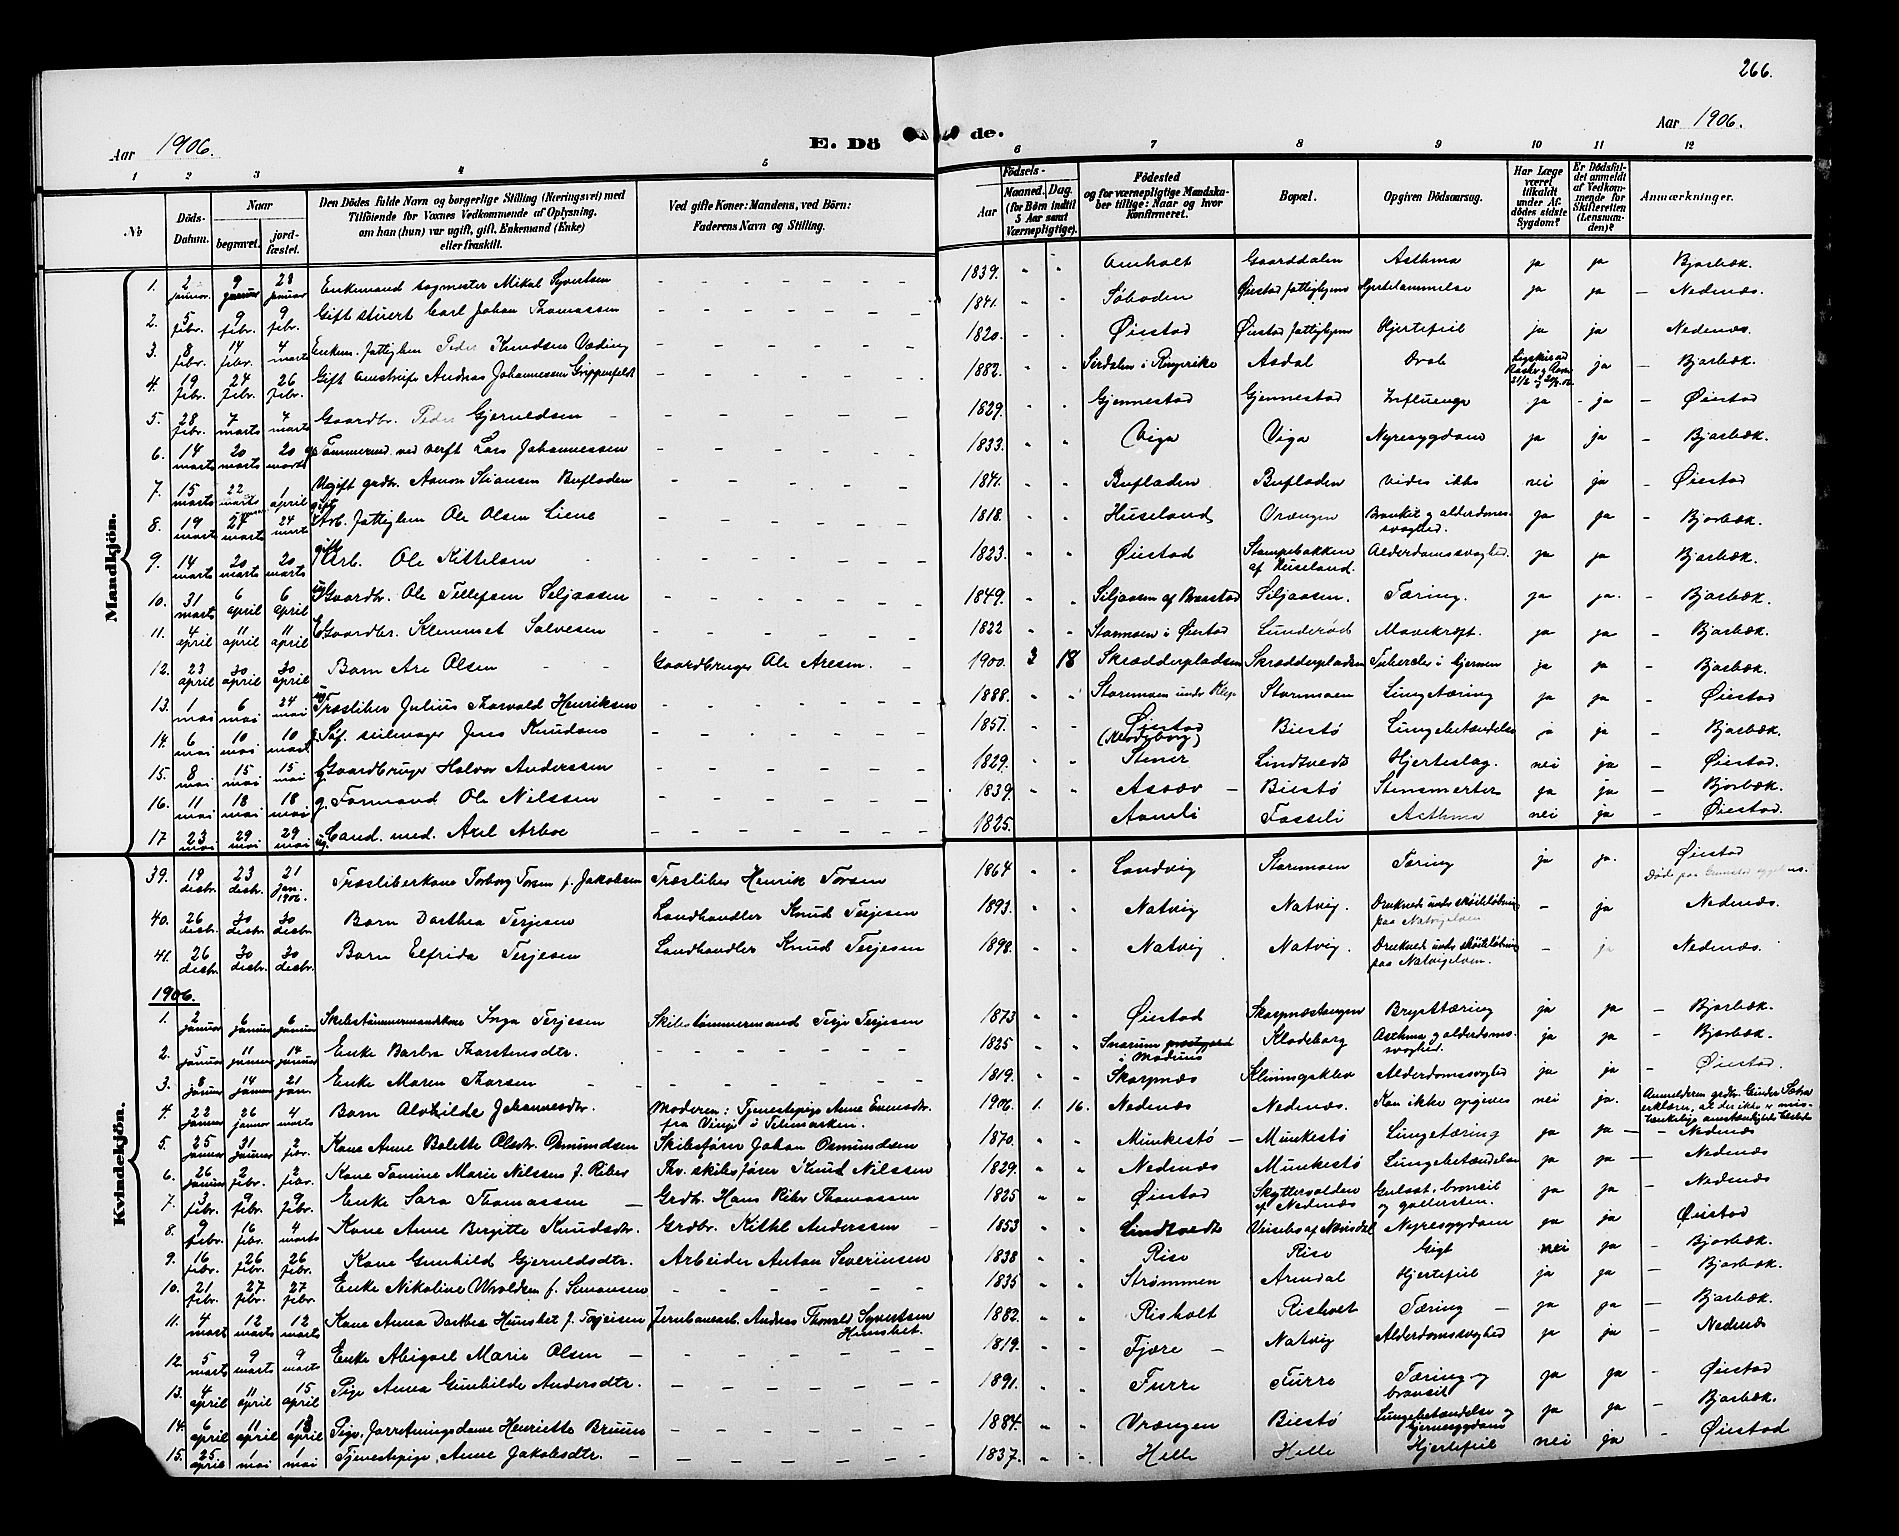 266.
Aar 1906.
E. Dö
de.
Aar 1906.
1 2 3 4 5 6 7 8 9 10 11 12
No
Döds-Datum.
Naar
begravet.
jord-fæstet.
Den Dödes fulde Navn og borgerlige Stilling (Næringsvei) med
Tilföiende for Voxnes Vedkommende af Oplysning,
om han (hun) var ugift, gift, Enkemand (Enke)
eller fraskilt.
Ved gifte Koner: Mandens, ved Börn:
Faderens Navn og Stilling.
Födsels-
Aar
Maaned. Dag.
(for Börn indtil
5 Aar samt
Værnepligtige).
Födested
og for værnepligtige Mandska-
ber tillige: Naar og hvor
konfirmeret.
Bopæl.
Opgiven Dödsaarsag.
Har Læge
været
tilkaldt
under Af-
dödes sidste
Sygdom?
Er Dödsfal-
det anmeldt
af Vedkom-
mende for
Skifteretten
(Lensman-
den)?
Anmærkninger.
Mandkjön.
1. 2 januar. 9 januar 28 januar Enkemand sagmester Mikal Syvertsen 1839. Amholt Gaarddalen Asthma ja ja Bjorbæk.
2. 5 febr. 9 febr. 9 febr. Gift stuert Carl Johan Thomassen 1841. Søboden Øiestad fattighjem Hjertelammelse ja ja Nedenæs.
3. 8 febr. 14 febr. 4 marts Enkem. fattiglem Peder Knudsen Vading 1820. Øiestad Øiestad fattighjem Hjertefeil ja ja Nedenæs.
4. 19 febr. 24 febr. 26 febr. Gift Andreas Johannessen Grippenfeldt 1882. Sirdalen i Ringerike Asdal ja Bjorbæk.
5. 28 febr. 7 marts 4 marts Gaardbr. Peder Gjeruldsen 1829. Gjennestad Gjennestad Influenza ja ja Øiestad
6. 14 marts 20 marts 20 marts g. Tømmermd. ved verft Lars Johannessen 1833. Viga Viga Nyresygdom ja ja Bjorbæk.
7. 15 marts 22 marts 1 april Ugift grdbr. Aanon Stiansen Bufladen 1841. Bufladen Bufladen vides ikke nei ja Øiestad
8. 19 marts 24 marts 24 marts gift Arb. fattiglem Ole Olsen Liene 1818. Huseland Vrængen Bronkit og alderdoms-svaghed. ja ja Bjorbæk.
9. 14 marts 20 marts 20 marts gift Arb. Ole Kittelsen 1823. Øiestad Stampebakken af Huseland. Alderdomssvaghed. ja ja Bjorbæk.
10. 31 marts 6 april 6 april Gaardbr. Ole Tellefsen Seljaasen 1849. Seljaasen af Braastad Seljaasen. Tæring. ja ja. Bjorbæk.
11. 4 april 11 april 11 april Gaardbr. Klemmet Salvesen 1822 i Øiestad Lunderød Mavekræft. ja ja Bjorbæk.
12. 23 april 30 april 30 april Barn Are Olsen Gaardbruger Ole Aresen. 1900. 3 18 Skrædderpladsen Skrædderpladsen Tubercler i Hjernen ja ja Bjorbæk.
13. 1 mai 6 mai 24 mai ug. Træsliber Julius Thorvald Henriksen 1888. Storemoen under Klep. Storemoen Lungetæring ja ja Øiestad
14. 6 mai 10 mai 10 seilmager Jens Knudsen 1857. Øiestad (Klodeborg) Biestø Lungebetændelse ja Bjorbæk.
15. 8 mai 15 mai 15 mai g. Gaardbruger Halvor Anderssen 1829. Stener Lindtvedt Hjerteslag. nei ja Øiestad.
16. 11 mai 18 mai 18 mai g. Formand Ole Nilssen 1839. Assæv Biestø Stensmerter ja ja Bjorbæk.
17 23 mai 29 mai 29 mai ug. Cand. med. Axel Arboe 1825. Aamli Fosseli Asthma nei ja Øiestad.
Kvindekjön.
39. 19 desbr. 23 desbr. 21 jan. 1906. Træsliberkone Torborg Torsen f. Jakobsen Træsliber Henrik Torsen 1864 Landvig Storemoen Tæring ja ja. Øiestad
Døde paa Grimstad sygehus.
40. 26 desbr. 30 desbr. 30 desbr. Barn Dorthea Terjesen Landhandler Knud Terjesen 1893. Natvig Natvig. Druknede under skøiteløbning paa Natvigelven ja Nedenæs.
41. 26 desbr. 30 desbr. 30 desbr. Barn Elfrida Terjesen Landhandler Knud Terjesen 1898. Natvig Natvig. Druknede under skøiteløbning paa Natvigelven. ja Nedenæs.
1906.
1. 2 januar 6 januar 6 januar Skibstømmermandskone Inga Terjesen Skibstømmermand Terje Terjesen 1873 Øiestad Skarpnæstangen Brysttæring ja ja Bjorbæk.
2. 5 januar 11 januar 14 januar Enke Barbra Thorstensdtr. 1825 Snarum præstgjeld i Modums Klodeborg Asthma og alderdoms-svaghed. ja ja Bjorbæk.
3. 8 januar 14 januar 21 jan. Enke Maren Thorsen 1819. Skarpnæs Kliningsklev Alderdomssvaghed ja ja Øiestad.
4. 22 januar 26 januar 4 marts Barn Alvhilde Johannesdtr. Moderen: Tjenestepige Anne Evensdtr. fra Vinje i Telemarken. 1906. 1. 16. Nedenæs Nedenæs. Kan ikke opgives nei ja. Anmelderen
5. 25 januar 31 januar 2 febr. Kone Anne Bolette Olsdtr. Osmundsen Skibsfører Johan Osmundsen 1870. Munkestø Munkestø Lungetæring ja ja Nedenæs
6. 26 januar 2 febr. 2 febr. Kone Tomine Marie Nilssen f. Riber Fhv. skibsfører Knud Nilssen 1829. Nedenæs Munkestø Lungebetændelse ja ja Nedenæs
7. 3 febr. 9 febr. 9 febr. Enke Sara Thomassen Grdb. Hans Riber Thomassen 1825 Øiestad Skyttervolden af Nedenæs Gulsot, bronsit og galdesten. ja ja Nedenæs
8. 9 febr. 16 febr. 4 marts Kone Anne Birgitte Knudsdtr. Grdbr. Kittil Anderssen 1853 Lindtvedt Nyresygdom ja ja Øiestad
9. 16 febr. 26 febr. 26 febr. Kone Gunhild Gjeruldsdtr. Arbeider Anton Severinsen 1838 Rise Rise Gigt nei ja Bjorbæk.
10. 21 febr. 27 febr. 27 febr. Enke Nikoline Uvoldsen f. Simonsen 1835 Strømmen Arendal Hjertefeil ja ja Bjorbæk.
11. 4 mart 12 marts 12 marts Kone Anna Dorthea Humshet f. Terjesen Jernbanearb. Andreas Thorvald Syvertsen Humshet. 1882. Risholt Risholt Tæring ja ja Bjorbæk.
12. 5 marts 9 marts 9 marts Enke Abigael Marie Olsen 1819. Fjære Natvig Alderdomssvaghed ja ja Nedenæs
13. 4 april 11 april 15 april Pige Anna Gunhilde Andersdtr. 1891. Furre Furre Tæring og bronsit ja ja Øiestad
14. 6 april 11 april 18 april Pige, forretningsdame Henriette Bruun 1884. Vrængen Biestø Lungebetændelse og Hjernesygdom ja ja Bjorbæk.
15. 25 april 1 mai 1 mai Tjenestepige, Anne Jakobsdtr. 1837. Helle Helle Hjertefeil nei ja Øiestad